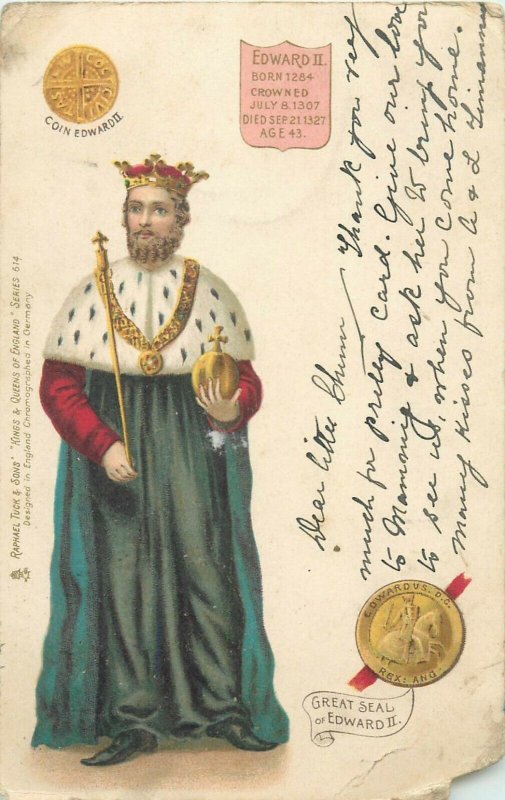 COIN EDWARD II
EDWARD II.
BORN 1284
CROWNED
JULY 8.1307
DIED SEP 21 1327
AGE 43.
RAPHAEL TUCK & SONS' "KINGS & QUEENS OF ENGLAND" SERIES 614
Designed in England Chromographed in Germany
Dear little Chum Thank you very
much for pretty card. Give our love
to Mammy & ask her to bring you
to see us, when you come home.
Many kisses from A & L
EDWARDVS. D.G.
REX: ANG
GREAT SEAL
OF EDWARD II.